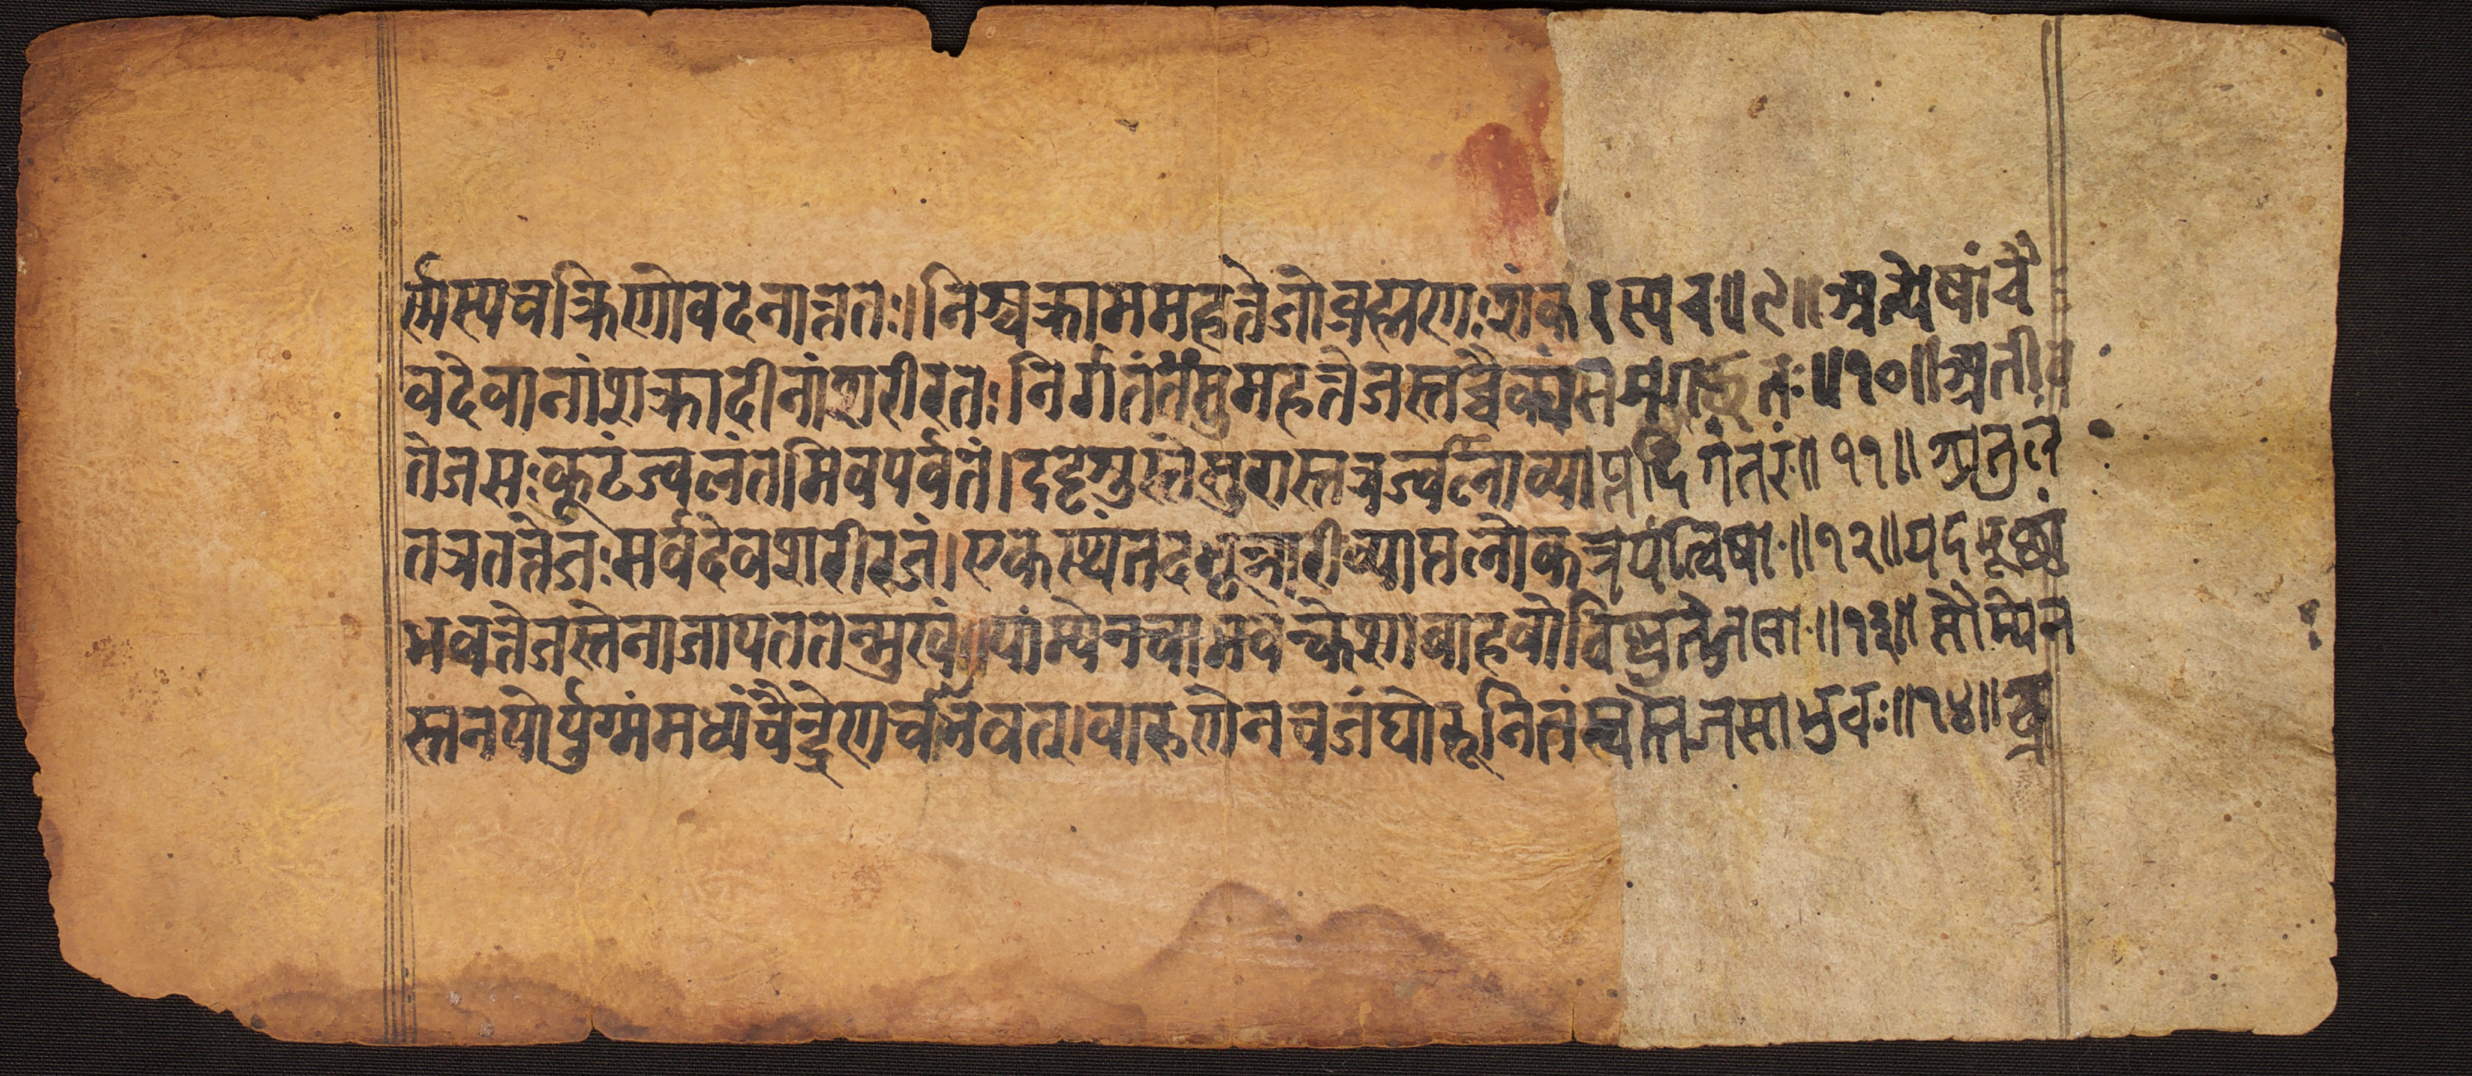 र्णस्यचक्रिणोवदनात्ततः।निश्चक्राममहत्तेजोब्रह्मणःशंकरस्यच॥९॥अन्येषांचै
वदेवानांशक्रादीनांशरीरतः निर्गतंसुमहत्तेजस्तच्चैक्यंसमगच्छतः॥१०॥अतीव
तेजसःकूटंज्वलंतमिवपर्वतं।ददृशुस्तेसुरास्तत्रज्वालाव्याप्तदिगंतरं॥११॥अतुलं
तत्रतत्तेजःसर्वदेवशरीरजं।एकस्थंतदभून्नारीव्याप्तलोकत्रयंत्विषा॥१२॥यदभूच्छां
भवत्तेजस्तेनाजायततन्मुखं।याम्येनचाभवन्केशाबाहवोविष्णुतेजसा॥१३॥सौम्येन
स्तनयोर्युग्मंमध्यंचैन्द्रेणचाभवत्।वारुणेनचजंघोरूनितंबस्तेजसाभुवः॥१४॥ब्र